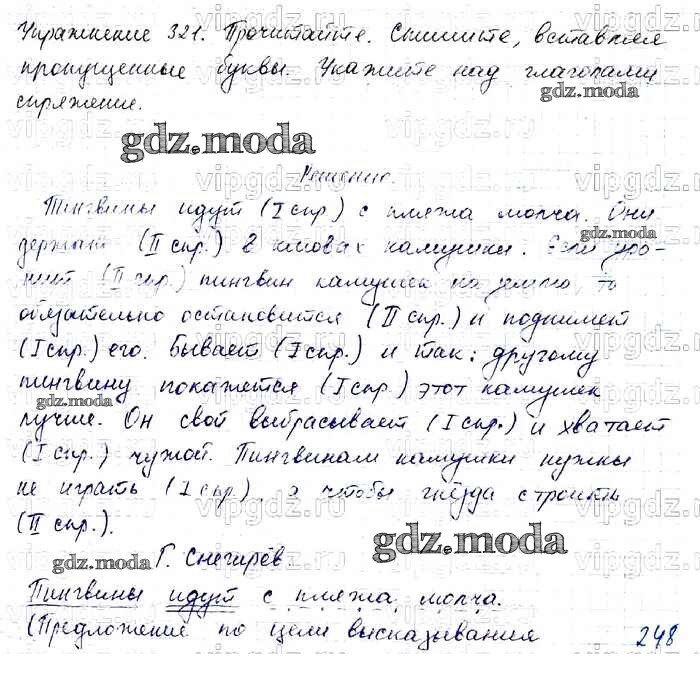 Упражнение 321. Прочитайте. Спишите, вставляя
пропущенные буквы. Укажите над глаголами
спряжение.
gdz.moda
gdz.moda
Решение.
Пингвины идут (I спр.) с пляжа молча. Они
держат (II спр.) в клювах камушки. Если уро-
нит (II спр.) пингвин камушек на землю, то
обязательно остановится (II спр.) и поднимет
(I спр.) его. Бывает (I спр.) и так: другому
пингвину покажется (I спр.) этот камушек
gdz.moda
лучше. Он свой выбрасывает (I спр.) и хватает
(I спр.) чужой. Пингвинам камушки нужны
не играть (I спр.), а чтобы гнёзда строить
(II спр.).
gdz.moda
gdz.moda
Г. Снегирёв.
Пингвины идут с пляжа молча.
(Предложение по цели высказывания
248
vipgdz.ru